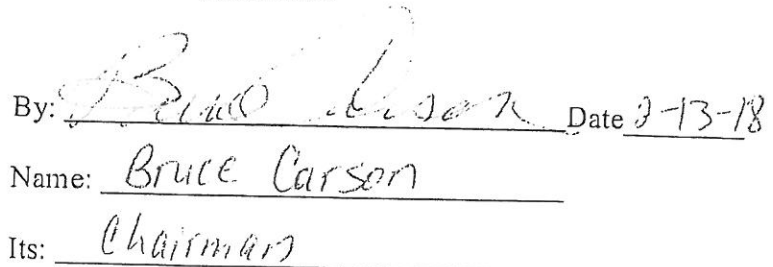 By: Bruce Carson Date 2-13-18
Name: Bruce Carson
Its: Chairman